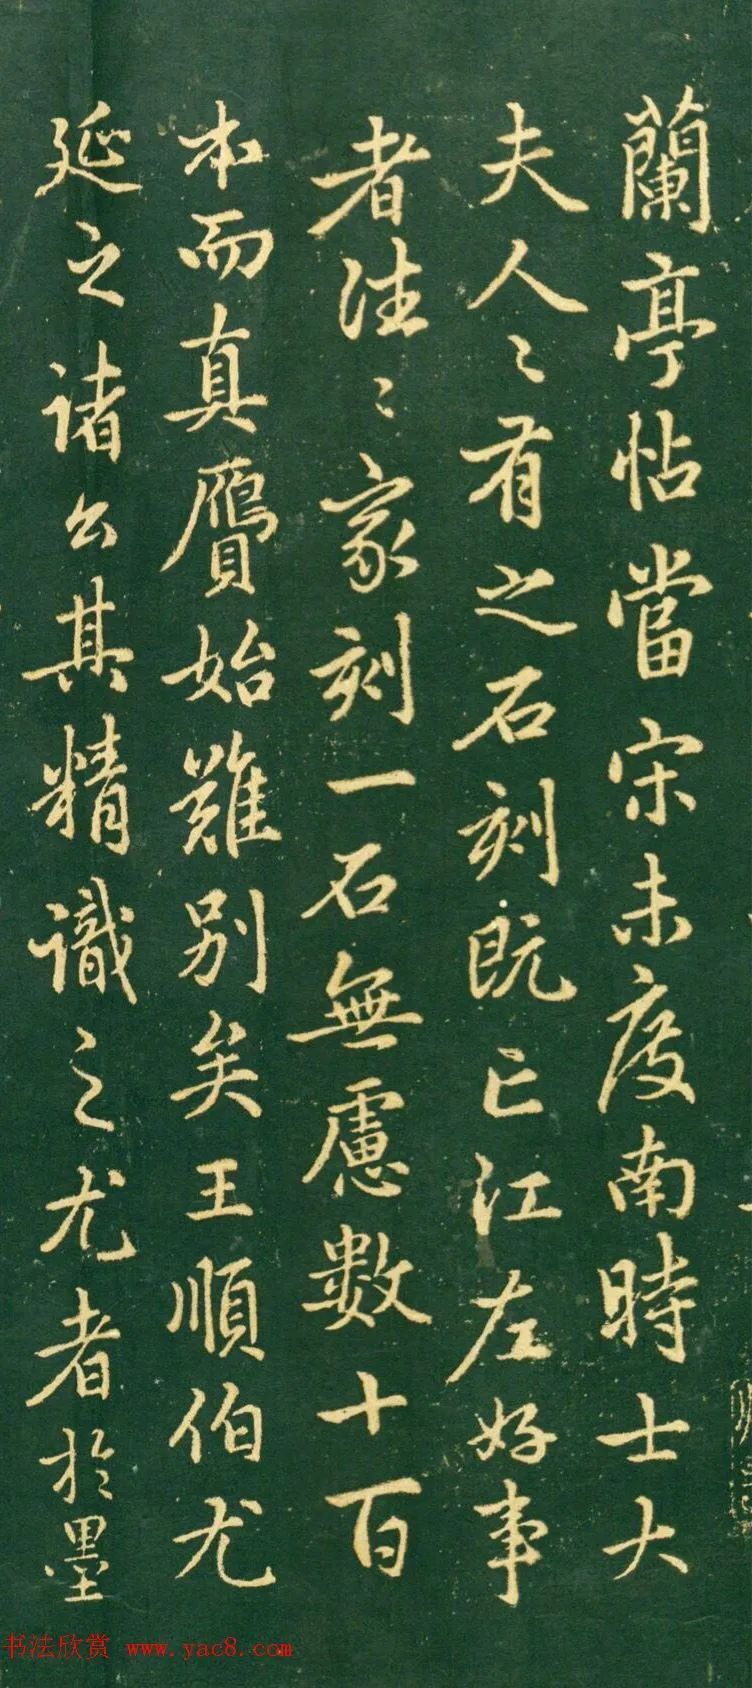 蘭亭帖當宋未度南時士大
夫人〻有之石刻既亡江左好事
者往〻家刻一石無慮數十百
本而真贗始難別矣王順伯尤
延之諸公其精識之尤者於墨
书法欣赏 www.yac8.com